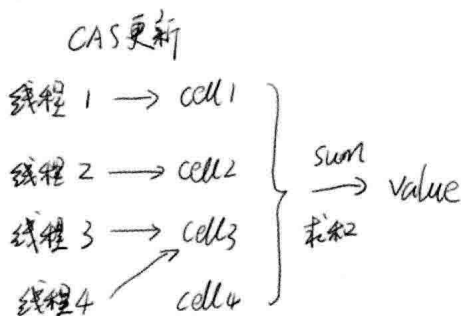 CAS更新
线程1 → cell1
线程2 → cell2
线程3 → cell3
线程4 cell4
sum
求和
→ value